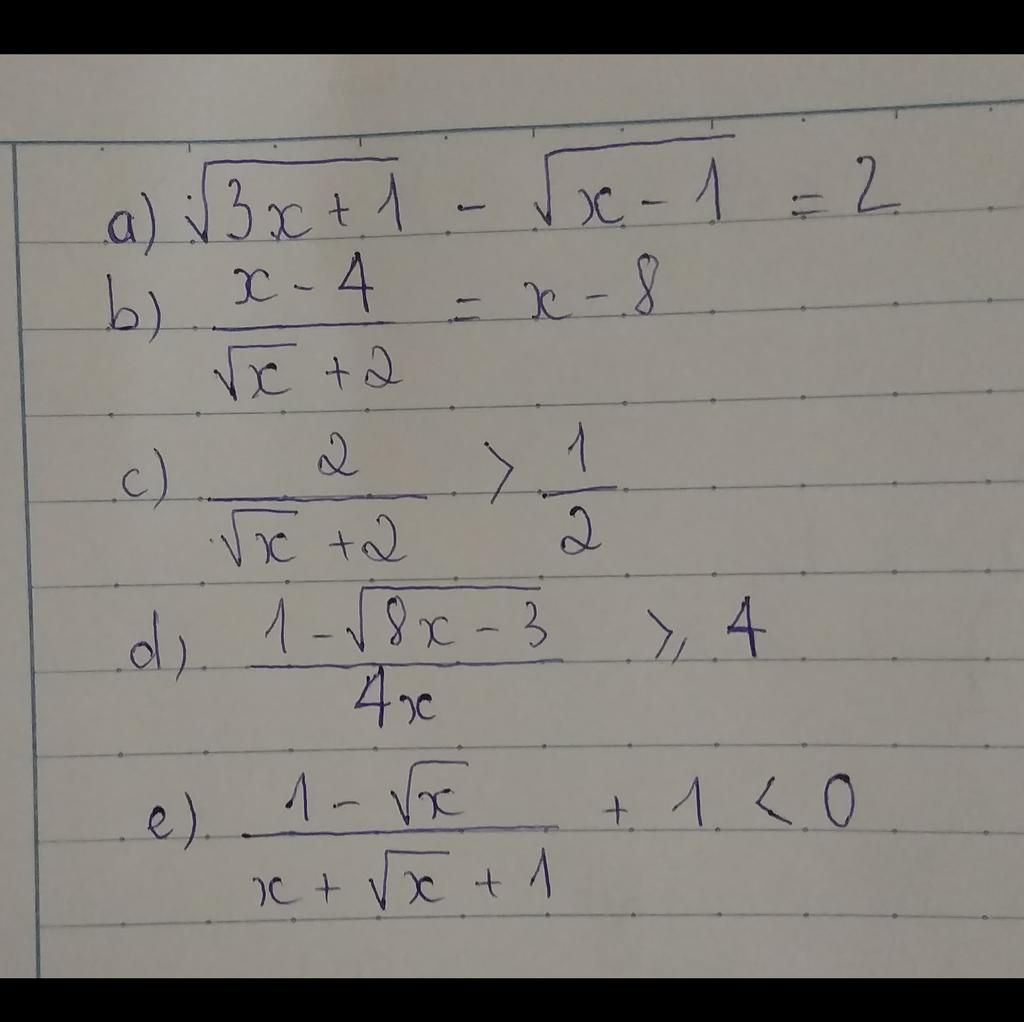 a) √(3x + 1) - √(x - 1) = 2
b) (x - 4)/(√x + 2) = x - 8
c) 2/(√x + 2) > 1/2
d) (1 - √(8x - 3))/(4x) ⩾ 4
e) (1 - √x)/(x + √x + 1) + 1 < 0